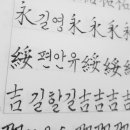 永 길 영 永 永 永
綏 편안 유 綏 綏 綏
吉 길할 길 吉 吉 吉 吉